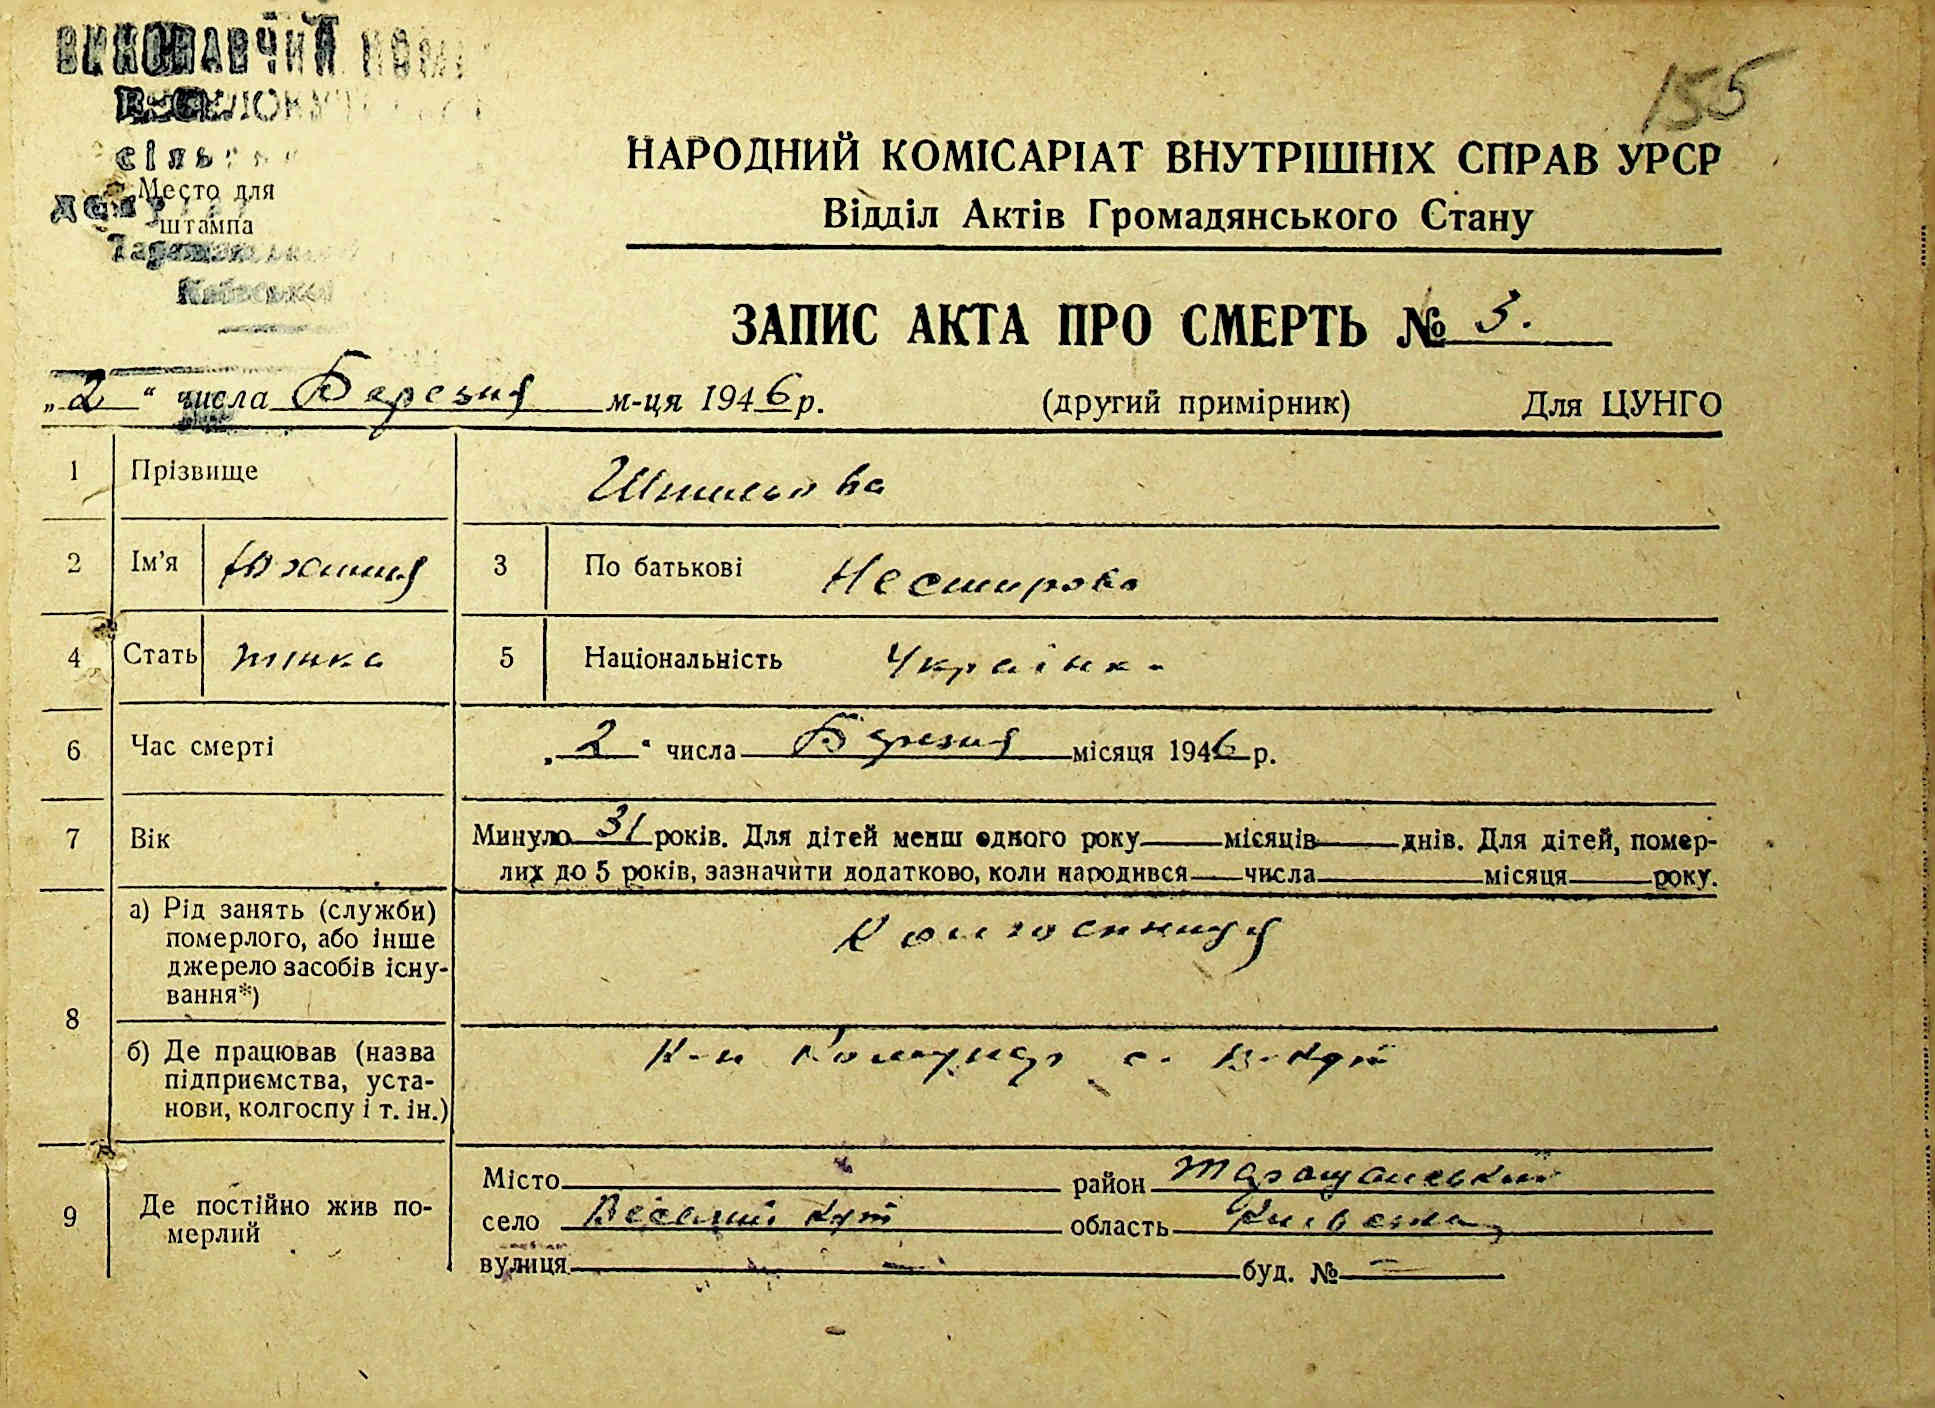 ВИКОНАВЧИЙ
сільс
Место для
штампа
155
НАРОДНИЙ КОМІСАРІАТ ВНУТРІШНІХ СПРАВ УРСР
Відділ Актів Громадянського Стану
ЗАПИС АКТА ПРО СМЕРТЬ № 3.
„2“ числа Березня м-ця 1946 р. (другий примірник) Для ЦУНГО
1 Прізвище
2 Ім'я Южиния 3 По батькові
4 Стать жінка 5 Національність Українка
6 Час смерті „2“ числа Березня місяця 1946 р.
7 Вік Минуло 31 років. Для дітей менш одного року місяців днів. Для дітей, помер-
лих до 5 років, зазначити додатково, коли народився числа місяця року.
8 а) Рід занять (служби)
померлого, або інше
джерело засобів існу-
вання*)
Колгоспниця
б) Де працював (назва
підприємства, уста-
нови, колгоспу і т. ін.)
К-п Комунар с. В-Кут
9 Де постійно жив по-
мерлий
Місто район Таращанський
село Веселий Кут область Київська
вулиця — буд. № —